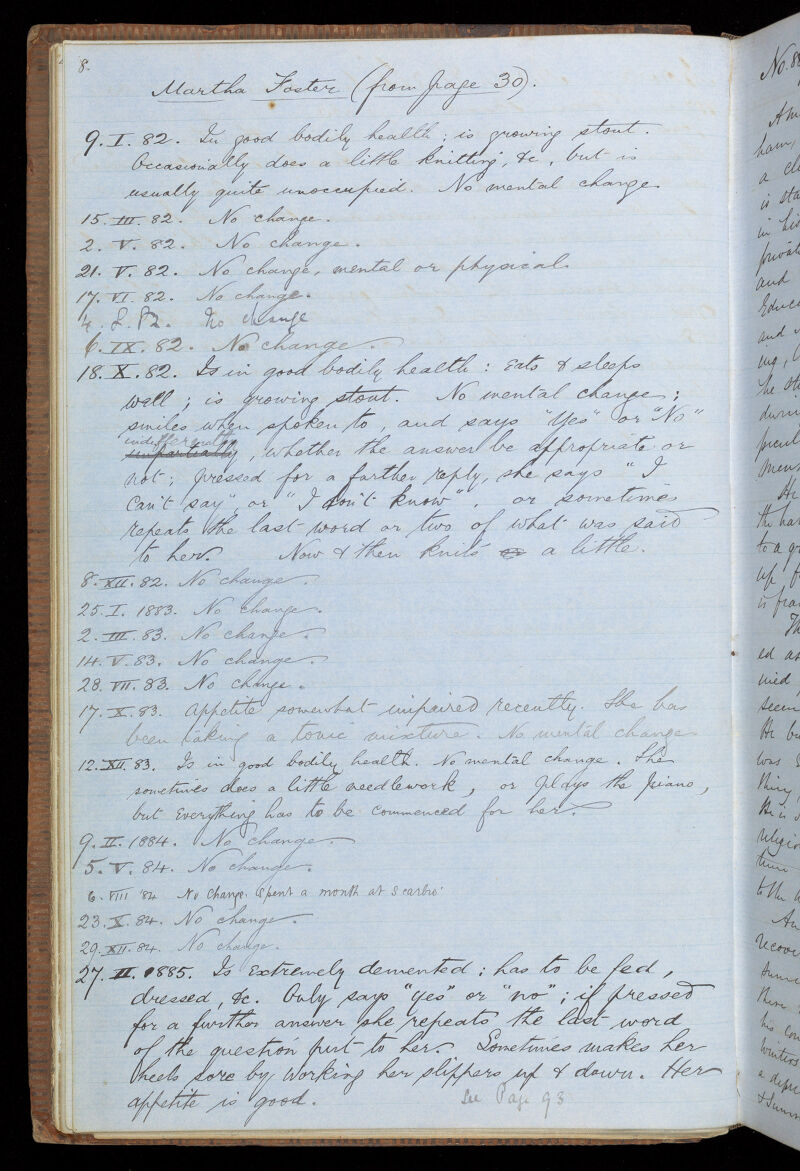 8.
Martha Foster (from page 30).
9. I. 82. In good bodily health; is growing stout.
Occasionally does a little knitting, &c, but is
usually quite unoccupied. No mental change.
15. III. 82. No change.
2. V. 82. No change.
21. V. 82. No change, mental or physical.
17. VI. 82. No change.
4. 8. 82. No change
6. IX. 82. No change.
18. X. 82. Is in good bodily health: Eats & sleeps
well; is growing stout. No mental change;
smiles when spoken to, and says "Yes" or "No"
indifferently
impartially, whether the answer be appropriate or
not; pressed for a further reply, she says "I
can't say", or "I don't know". or sometimes
repeats the last word or two of what was said
to her. Now & then knits a little.
8. XII. 82. No change.
25. I. 1883. No change.
2. III. 83. No change.
14. V. 83. No change.
28. VII. 83. No change.
17. X. 83. Appetite somewhat impaired recently. She has
been taking a tonic mixture. No mental change.
12. XII. 83. Is in good bodily health. No mental change. She
sometimes does a little needlework, or plays the piano,
but everything has to be commenced for her.
9. II. 1884. No change.
5. V. 84. No change.
6. VIII 84 No Change. Spent a month at Scarbro'
23. X. 84. No change.
29. XII. 84. No change.
27. II. 1885. Is extremely demented; has to be fed,
dressed, &c. Only says "yes" or "no"; if pressed
for a further answer she repeats the last word
of the question put to her. Sometimes makes her
heels sore by working her slippers up & down. Her
appetite is good. See Page 93